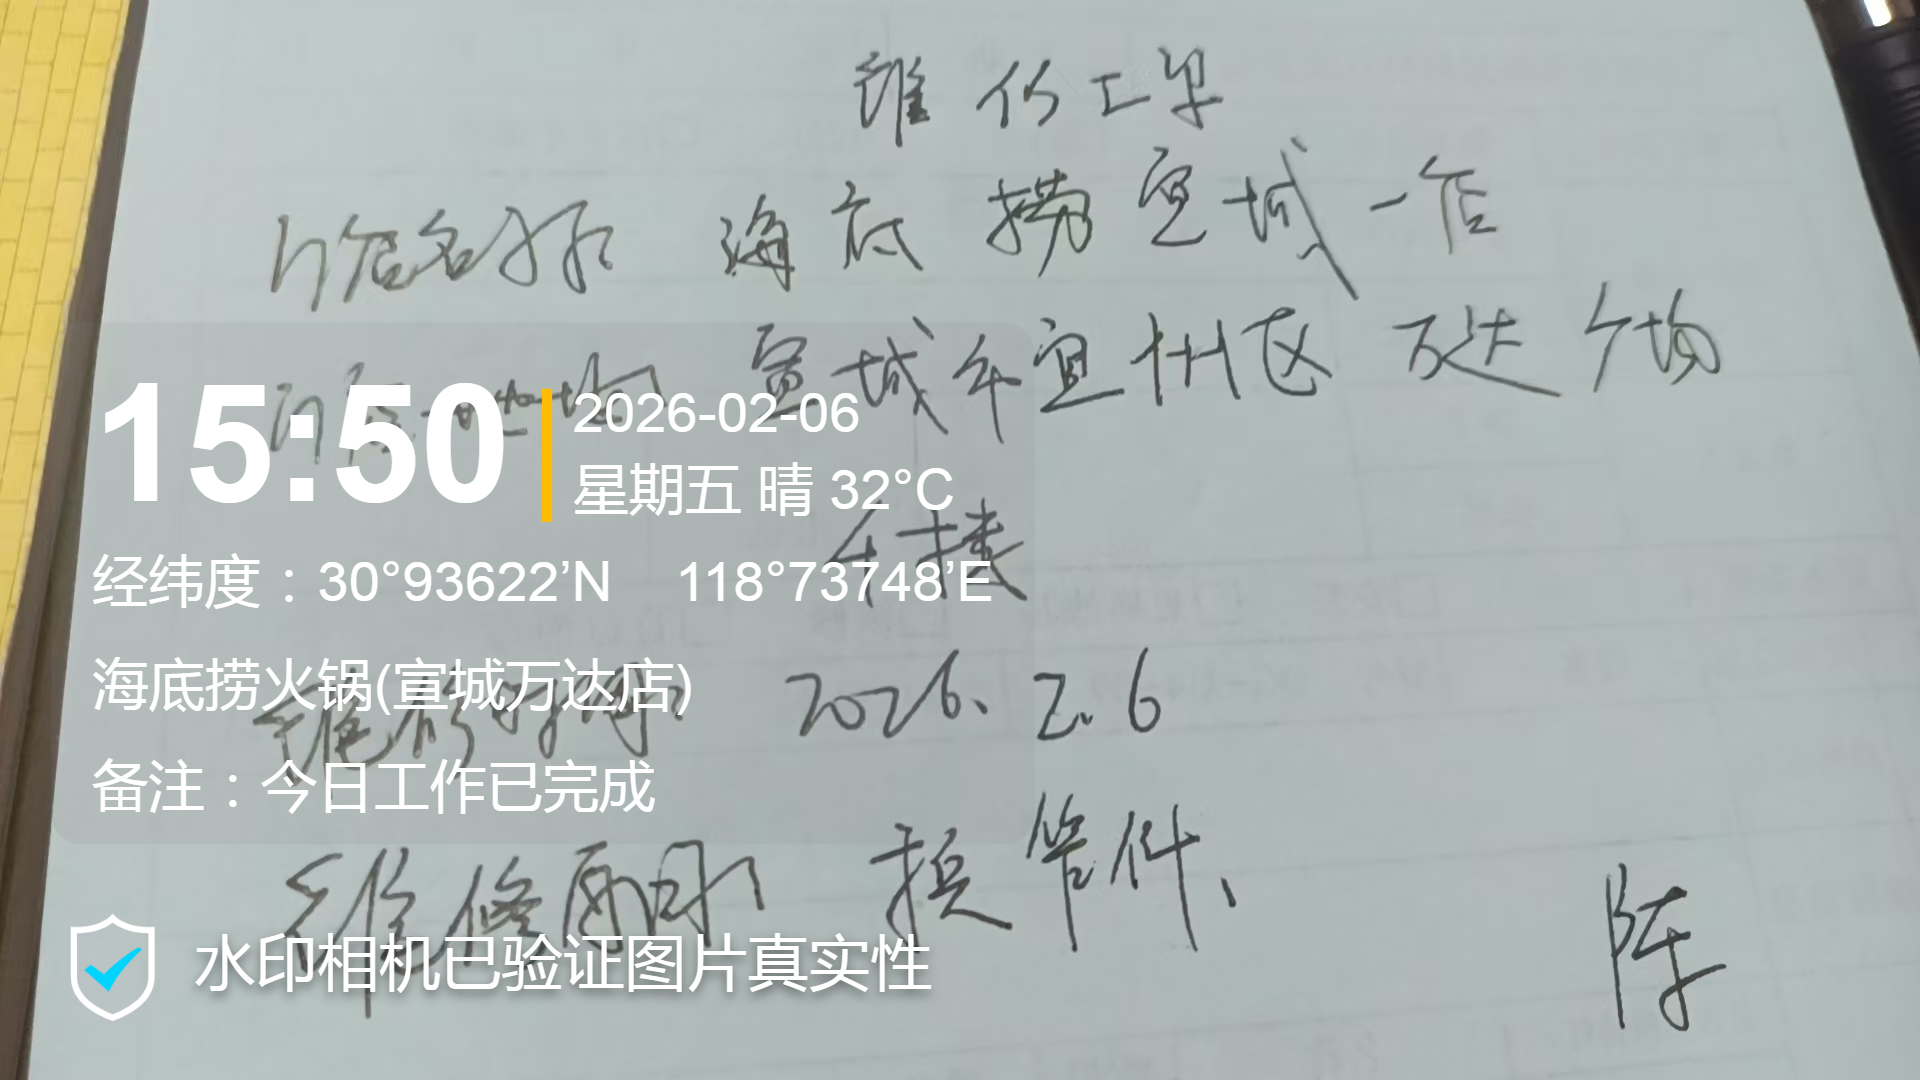 维修工单
门店名称 海底捞宣城一店
门店地址 宣城市宣州区万达广场
15:50
2026-02-06
星期五 晴 32°C
4楼
经纬度：30°93622’N 118°73748’E
海底捞火锅(宣城万达店)
维修时间 2026.2.6
备注：今日工作已完成
维修 换管件、
陈
水印相机已验证图片真实性